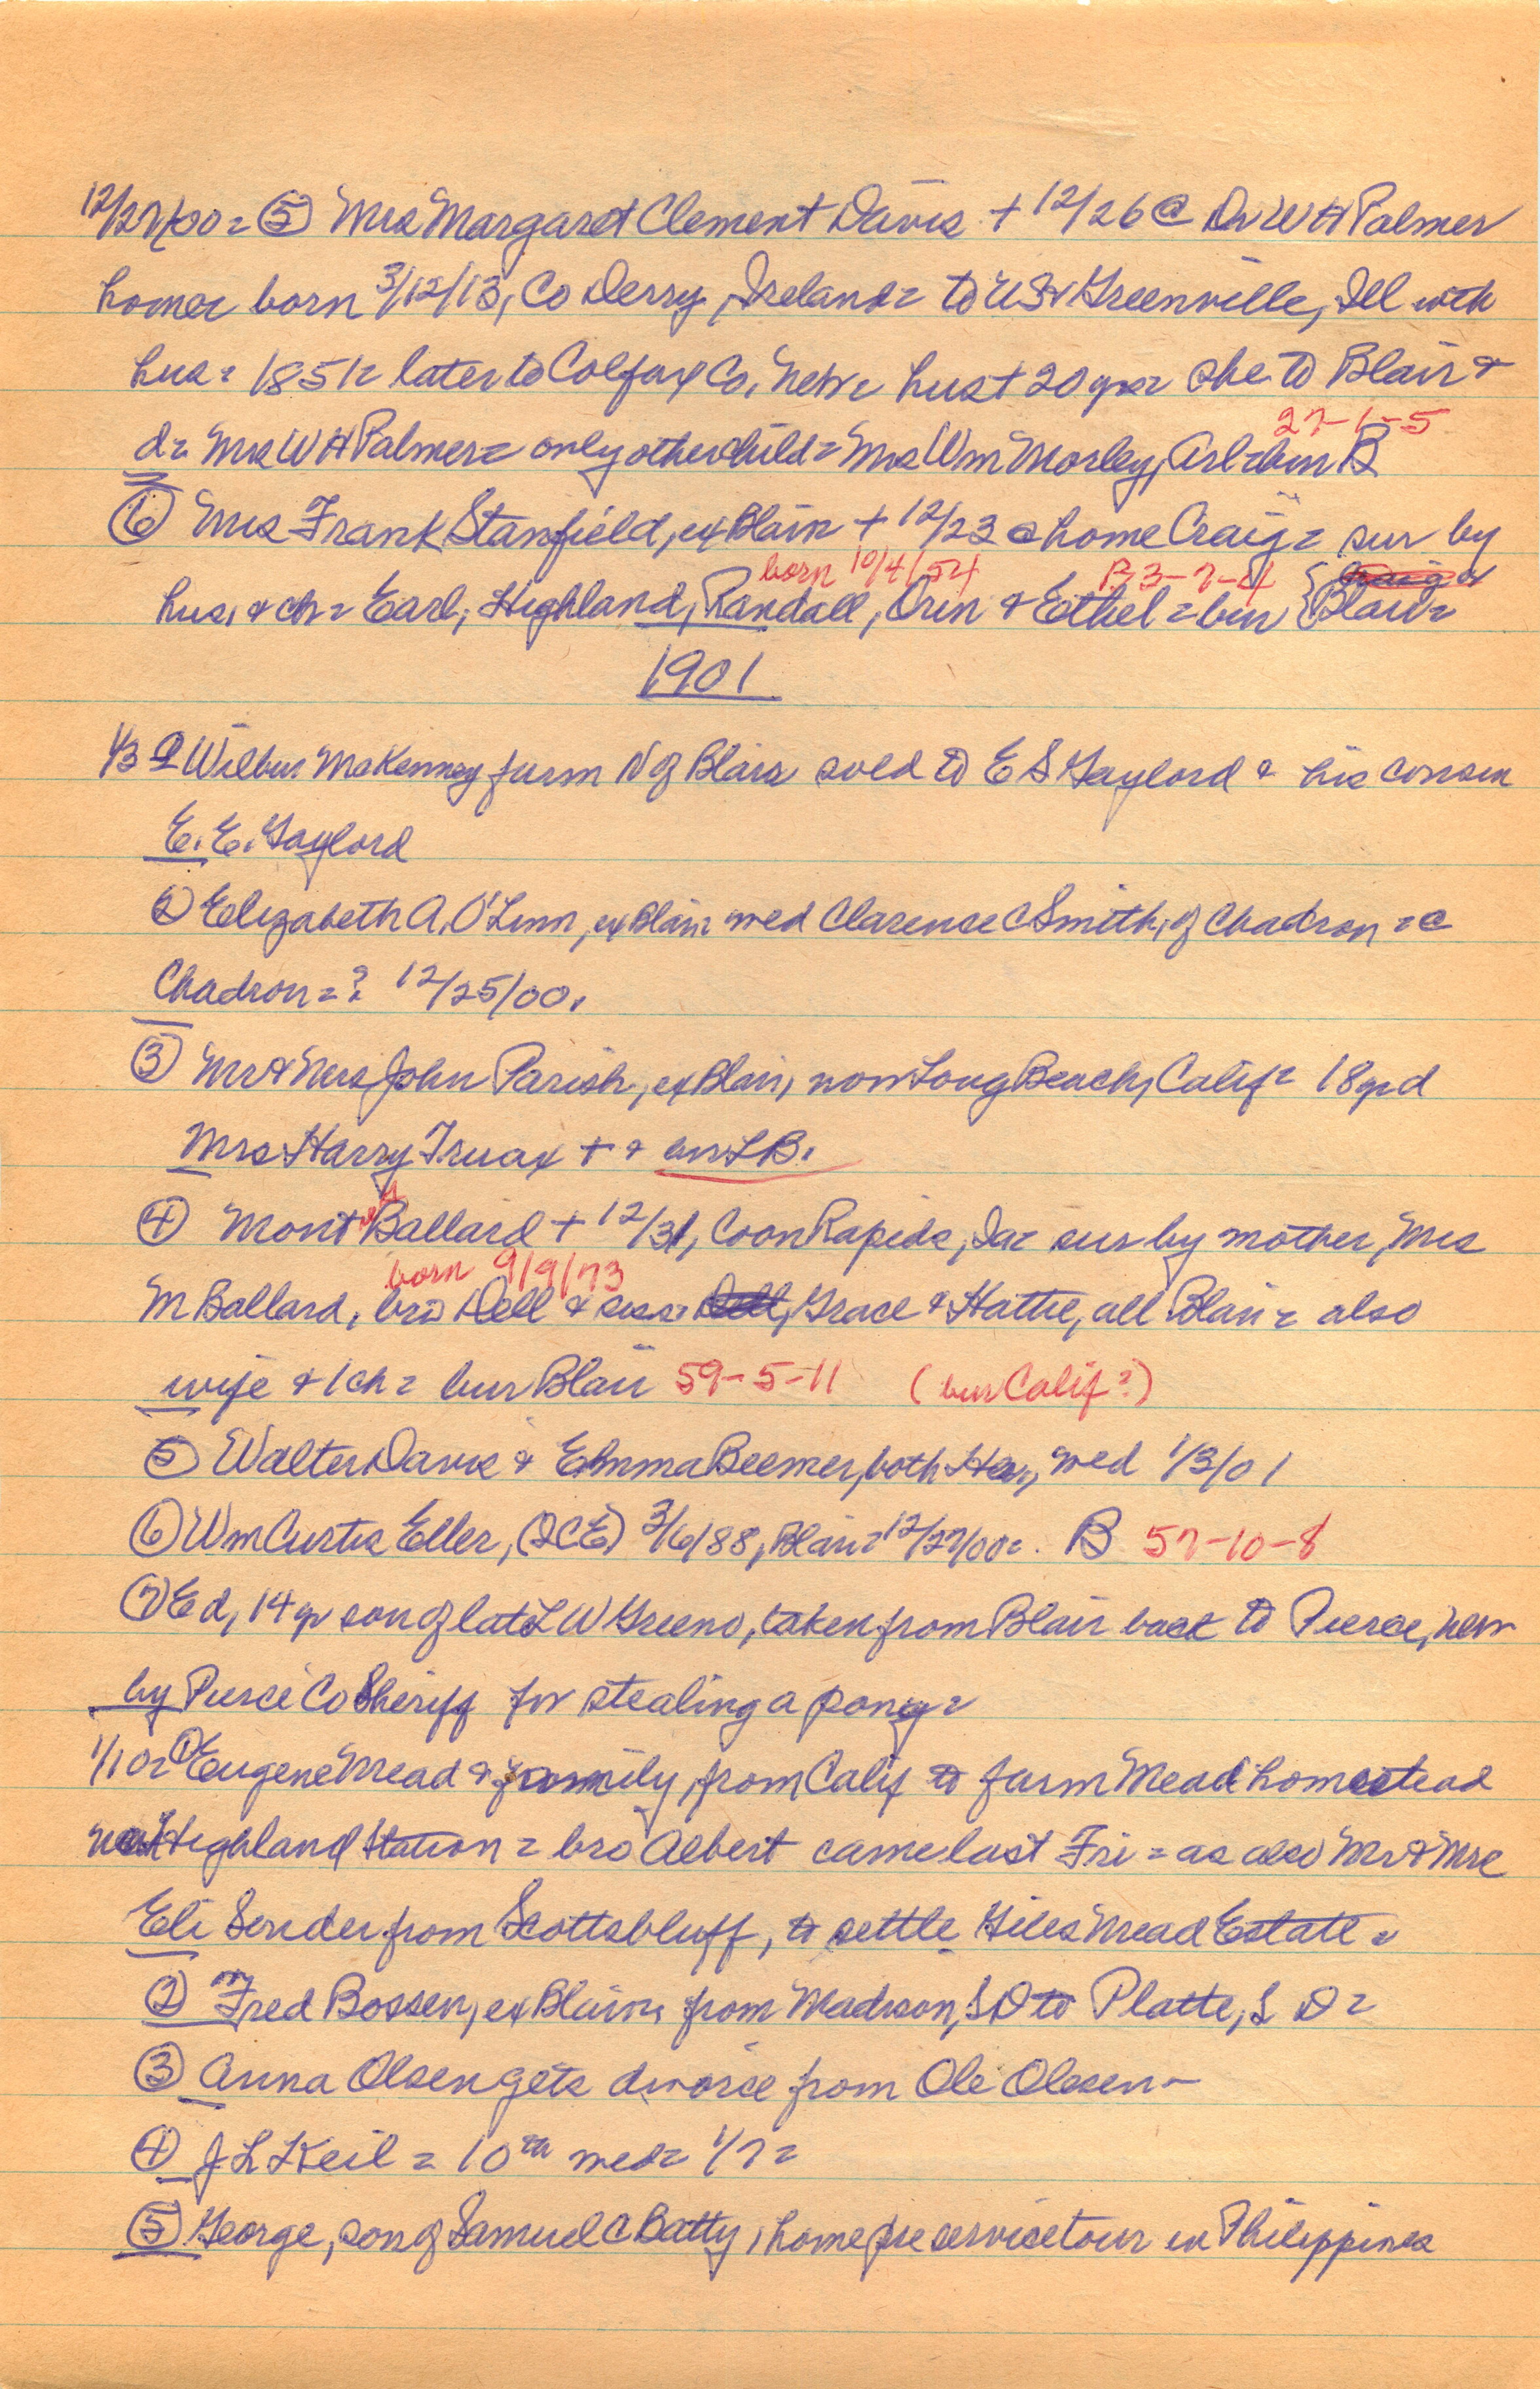 12/27/00= ⑤ Mrs Margaret Clement Davis + 12/26 @ Dr W H Palmer
home= born 3/12/13, Co Derry, Ireland= to US & Greenville, Ill with
hus= 1851= later to Colfax Co, Neb= hus + 20 yrs= she to Blair &
27-1-5
d= Mrs W H Palmer= only other child= Mrs Wm Morley, Arl= bur B
⑥ Mrs Frank Stanfield, ex Blair + 12/23 @ home Craig= sur by
born 10/4/54 B 3-7-4
hus, & ch= Earl, Highland, Randall, Orin & Ethel= bur { Blair=
1901
1/3 ① Wilbur McKenney farm N of Blair sold to E S Gaylord & his cousin
E. E. Gaylord
② Elizabeth A. O'Linn, ex Blair wed Clarence C Smith, of Chadron = @
Chadron =? 12/25/00.
③ Mr & Mrs John Parish, ex Blair, now Long Beach, Calif= 18 yr d
Mrs Harry Truax + & bur L B.
④ Mont Ballard + 12/31, Coon Rapids, Ia= sur by mother, Mrs
born 9/9/73
M Ballard, bro Dell & sis= Dell, Grace & Hattie, all Blair= also
wife & 1 ch= bur Blair 59-5-11 (bur Calif?)
⑤ Walter Davis & Emma Beemer, both Her, wed 1/3/01
⑥ Wm Curtis Eller, (ICE) 3/6/88, Blair= 12/27/00=. B 57-10-8
⑦ Ed, 14 yr son of late L W Greeno, taken from Blair back to Pierce, Neb
by Pierce Co Sheriff for stealing a pony=
1/10= ① Eugene Mead & family, from Calif to farm Mead homestead
near Highland Station = bro Albert came last Fri = as also Mr & Mrs
Eli Snider from Scottsbluff, to settle Giles Mead Estate=
② Fred Bossen, ex Blair, from Madison, S D to Platte, S D=
③ Anna Olsen gets divorce from Ole Olesen-
④ J L Keil = 10th wed= 1/7=
⑤ George, son of Samuel C Batty, home fr service tour in Philippines